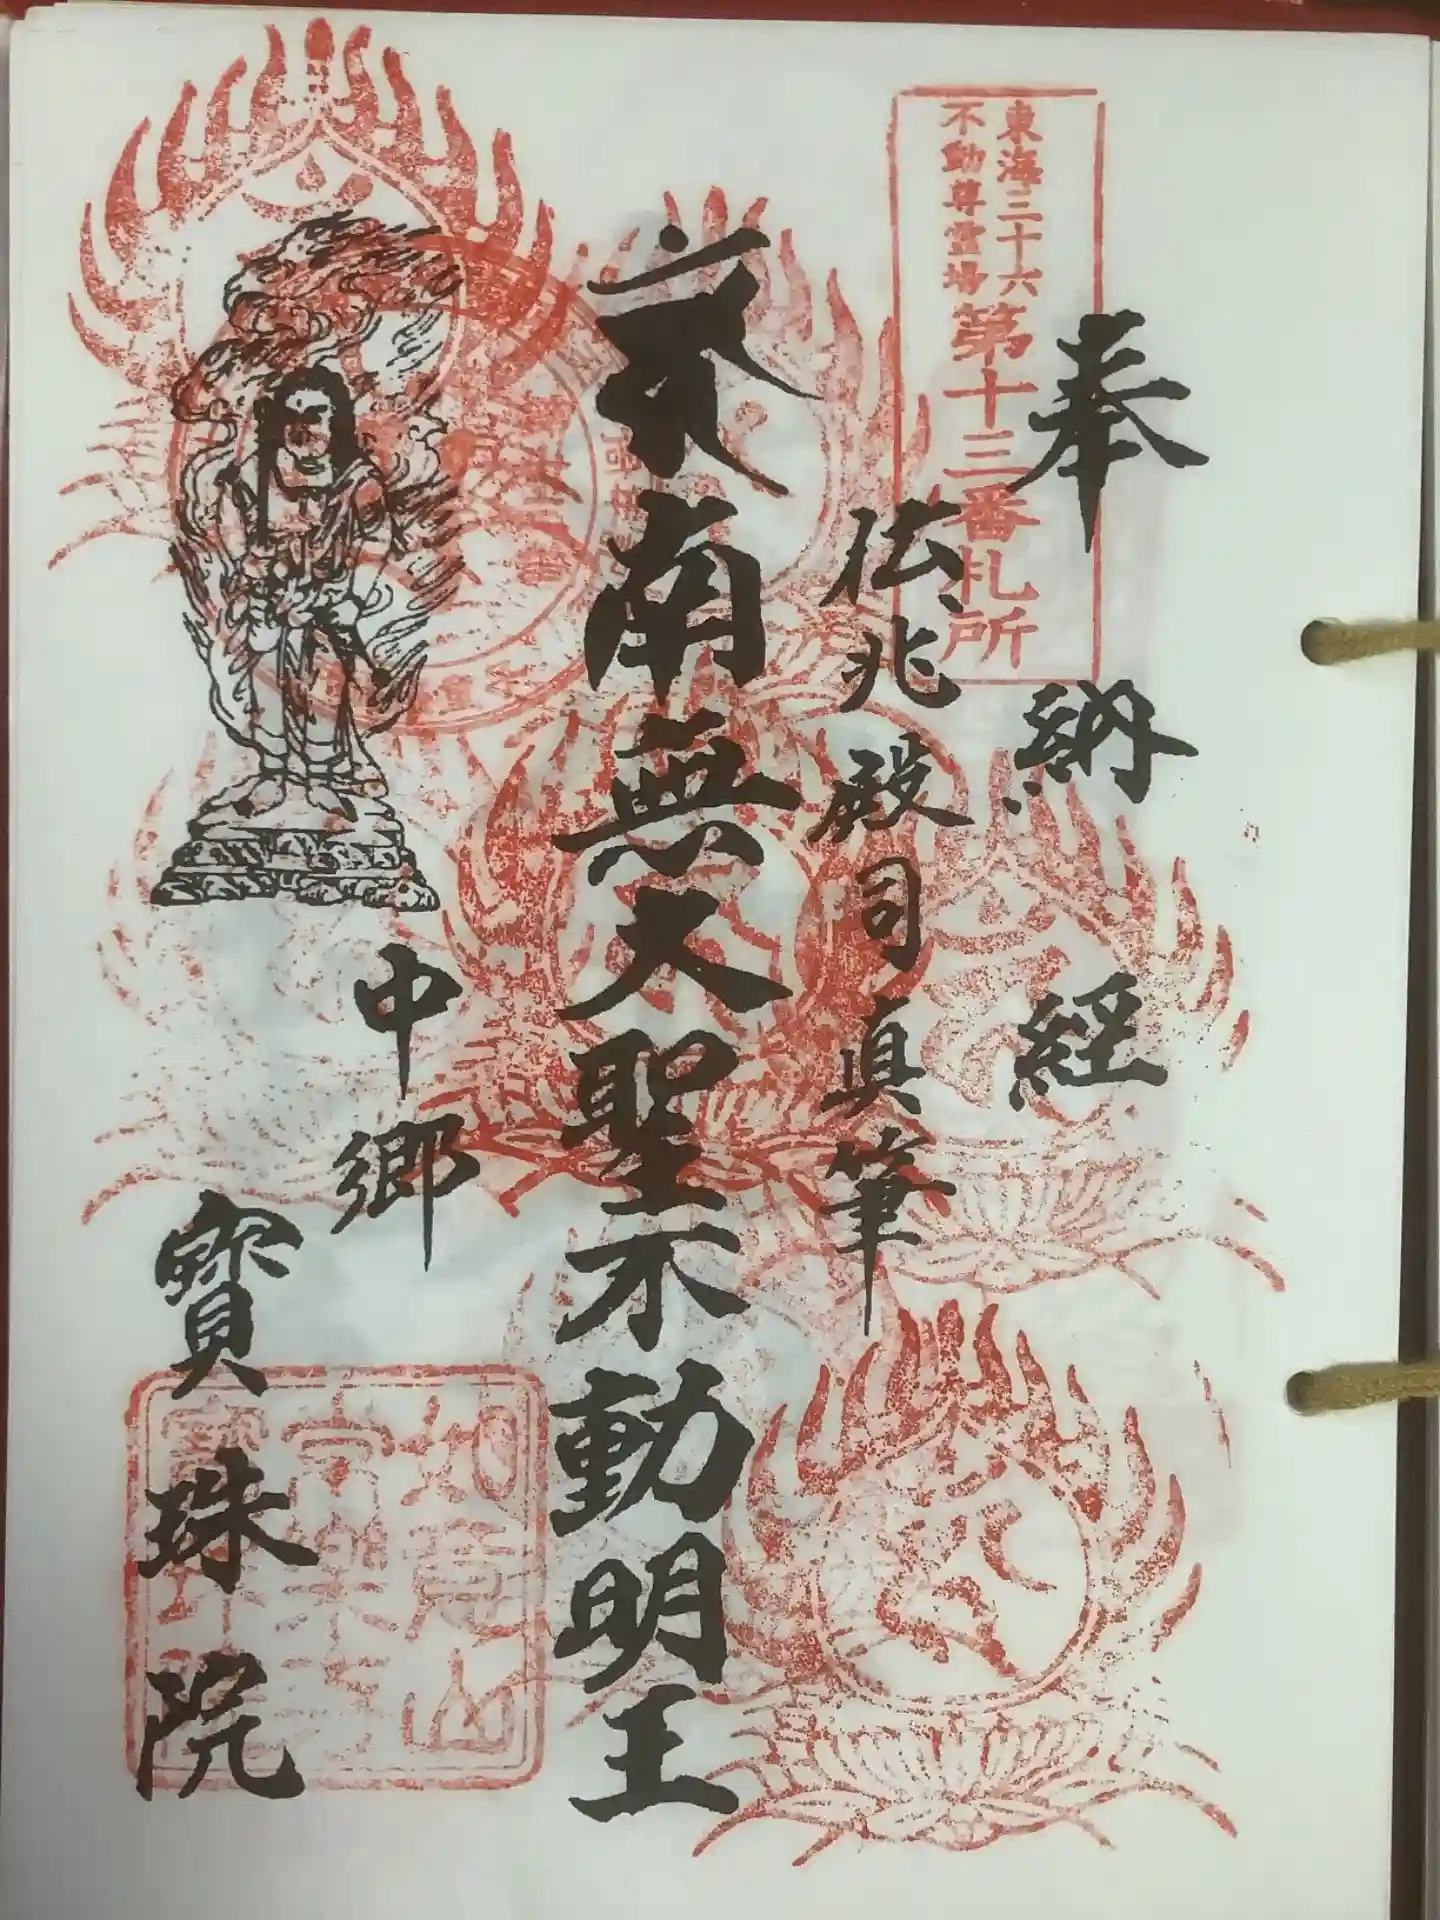 東海三十六
不動尊霊場
第十三番札所
奉納経
伝兆殿司真筆
南無大聖不動明王
中郷
寳珠院
如意山